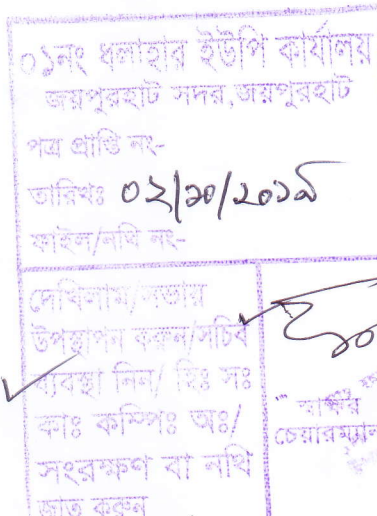 ০১নং ধলাহার ইউপি কার্যালয়
জয়পুরহাট সদর,জয়পুরহাট
পত্র প্রাপ্তি নং-
তারিখঃ ০২/১০/২০১৯
ফাইল/নথি নং-
দেখিলাম/সভায়
উপস্থাপন করুন/সচিব
ব্যবস্থা নিন/ হিঃ সঃ
কাঃ কম্পিঃ অঃ/
সংরক্ষণ বা নথি
জাত করুন
স্বাক্ষর
চেয়ারম্যান